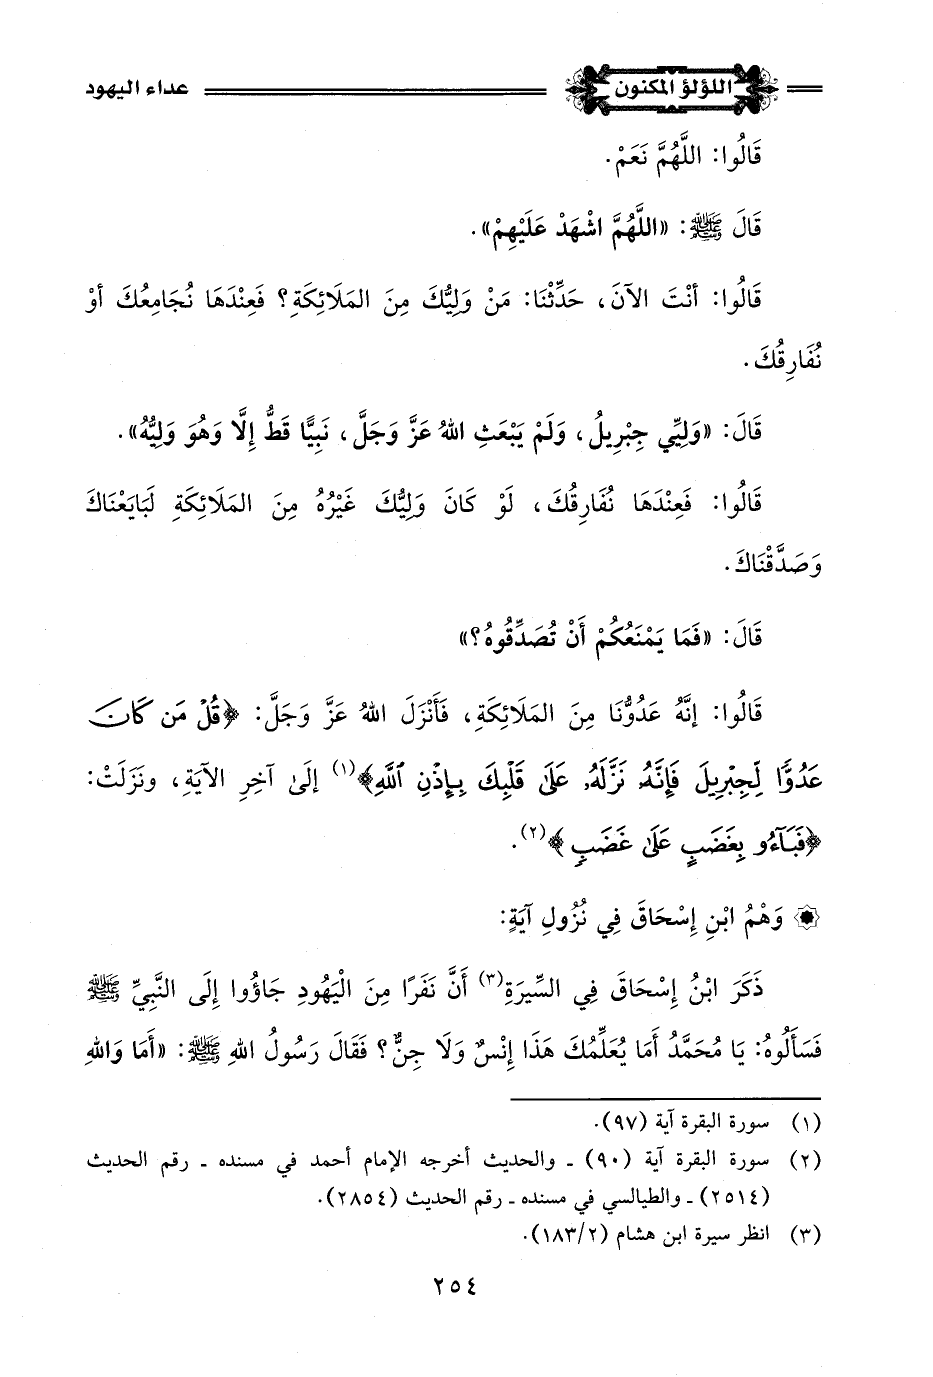 اللؤلؤ المكنون عداء اليهود
قَالُوا: اللَّهُمَّ نَعَمْ.
قَالَ ﷺ: «اللَّهُمَّ اشْهَدْ عَلَيْهِمْ».
قَالُوا: أَنْتَ الآنَ، حَدِّثْنَا: مَنْ وَلِيُّكَ مِنَ المَلَائِكَةِ؟ فَعِنْدَهَا نُجَامِعُكَ أَوْ
نُفَارِقُكَ.
قَالَ: «وَلِيِّي جِبْرِيلُ، وَلَمْ يَبْعَثِ اللهُ عَزَّ وَجَلَّ، نَبِيًّا قَطُّ إِلَّا وَهُوَ وَلِيُّهُ».
قَالُوا: فَعِنْدَهَا نُفَارِقُكَ، لَوْ كَانَ وَلِيُّكَ غَيْرُهُ مِنَ المَلَائِكَةِ لَبَايَعْنَاكَ
وَصَدَّقْنَاكَ.
قَالَ: «فَمَا يَمْنَعُكُمْ أَنْ تُصَدِّقُوهُ؟»
قَالُوا: إِنَّهُ عَدُوُّنَا مِنَ المَلَائِكَةِ، فَأَنْزَلَ اللهُ عَزَّ وَجَلَّ: ﴿قُلْ مَن كَانَ
عَدُوًّا لِّجِبْرِيلَ فَإِنَّهُۥ نَزَّلَهُۥ عَلَىٰ قَلْبِكَ بِإِذْنِ ٱللَّهِ﴾(١) إِلَىٰ آخِرِ الآيَةِ، ونَزَلَتْ:
﴿فَبَآءُو بِغَضَبٍ عَلَىٰ غَضَبٍ﴾(٢).
۞ وَهْمُ ابْنِ إِسْحَاقَ فِي نُزُولِ آيَةٍ:
ذَكَرَ ابْنُ إِسْحَاقَ فِي السِّيرَةِ(٣) أَنَّ نَفَرًا مِنَ الْيَهُودِ جَاؤُوا إِلَى النَّبِيِّ ﷺ
فَسَأَلُوهُ: يَا مُحَمَّدُ أَمَا يُعَلِّمُكَ هَذَا إِنْسٌ وَلَا جِنٌّ؟ فَقَالَ رَسُولُ اللهِ ﷺ: «أَمَا وَاللهِ
(١) سورة البقرة آية (٩٧).
(٢) سورة البقرة آية (٩٠) ـ والحديث أخرجه الإمام أحمد في مسنده ـ رقم الحديث
(٢٥١٤) ـ والطيالسي في مسنده ـ رقم الحديث (٢٨٥٤).
(٣) انظر سيرة ابن هشام (١٨٣/٢).
٢٥٤